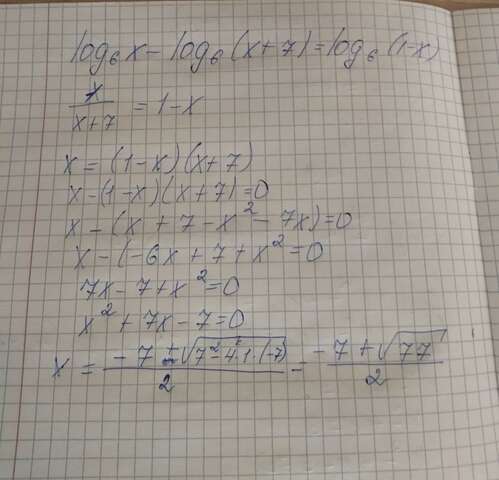 log₆ x - log₆ (x+7) = log₆ (1-x)
x/(x+7) = 1-x
x = (1-x)(x+7)
x-(1-x)(x+7)=0
x-(x+7-x²-7x)=0
x-(-6x+7+x²=0
7x-7+x²=0
x²+7x-7=0
x = (-7±√(7²-4·1·(-7)))/2 = (-7+√77)/2